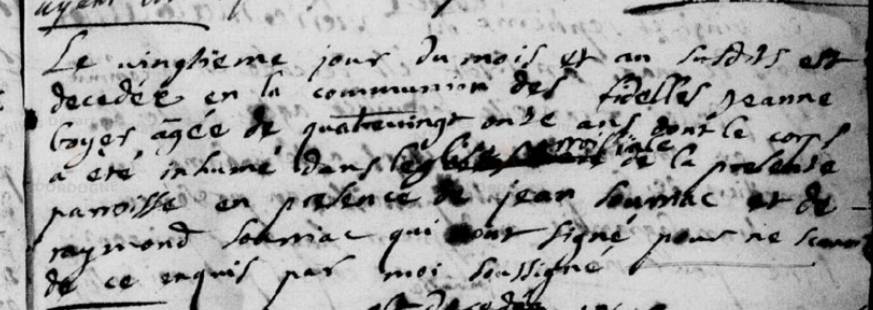 Le vingtieme jour du mois et an susdits est
decedée en la communion des fidelles Jeanne
boyer âgée de quatrevingt onze ans dont le corps
a eté inhumé dans leglise parroissiale de la presente
parroisse en presence de jean souriac et de
raymond souriac qui n'ont signé pour ne scavoir
de ce enquis par moi soussigné